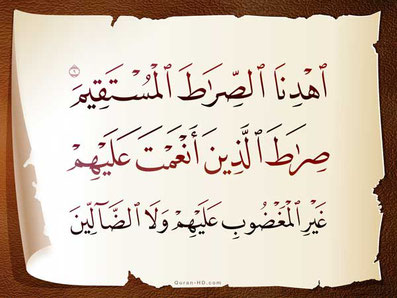 ٱهْدِنَا ٱلصِّرَٰطَ ٱلْمُسْتَقِيمَ ۝٦
صِرَٰطَ ٱلَّذِينَ أَنْعَمْتَ عَلَيْهِمْ
غَيْرِ ٱلْمَغْضُوبِ عَلَيْهِمْ وَلَا ٱلضَّآلِّينَ
Quran-HD.com